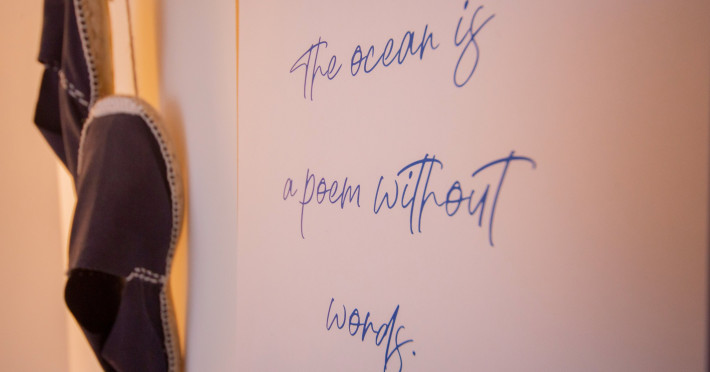 the ocean is
a poem without
words.